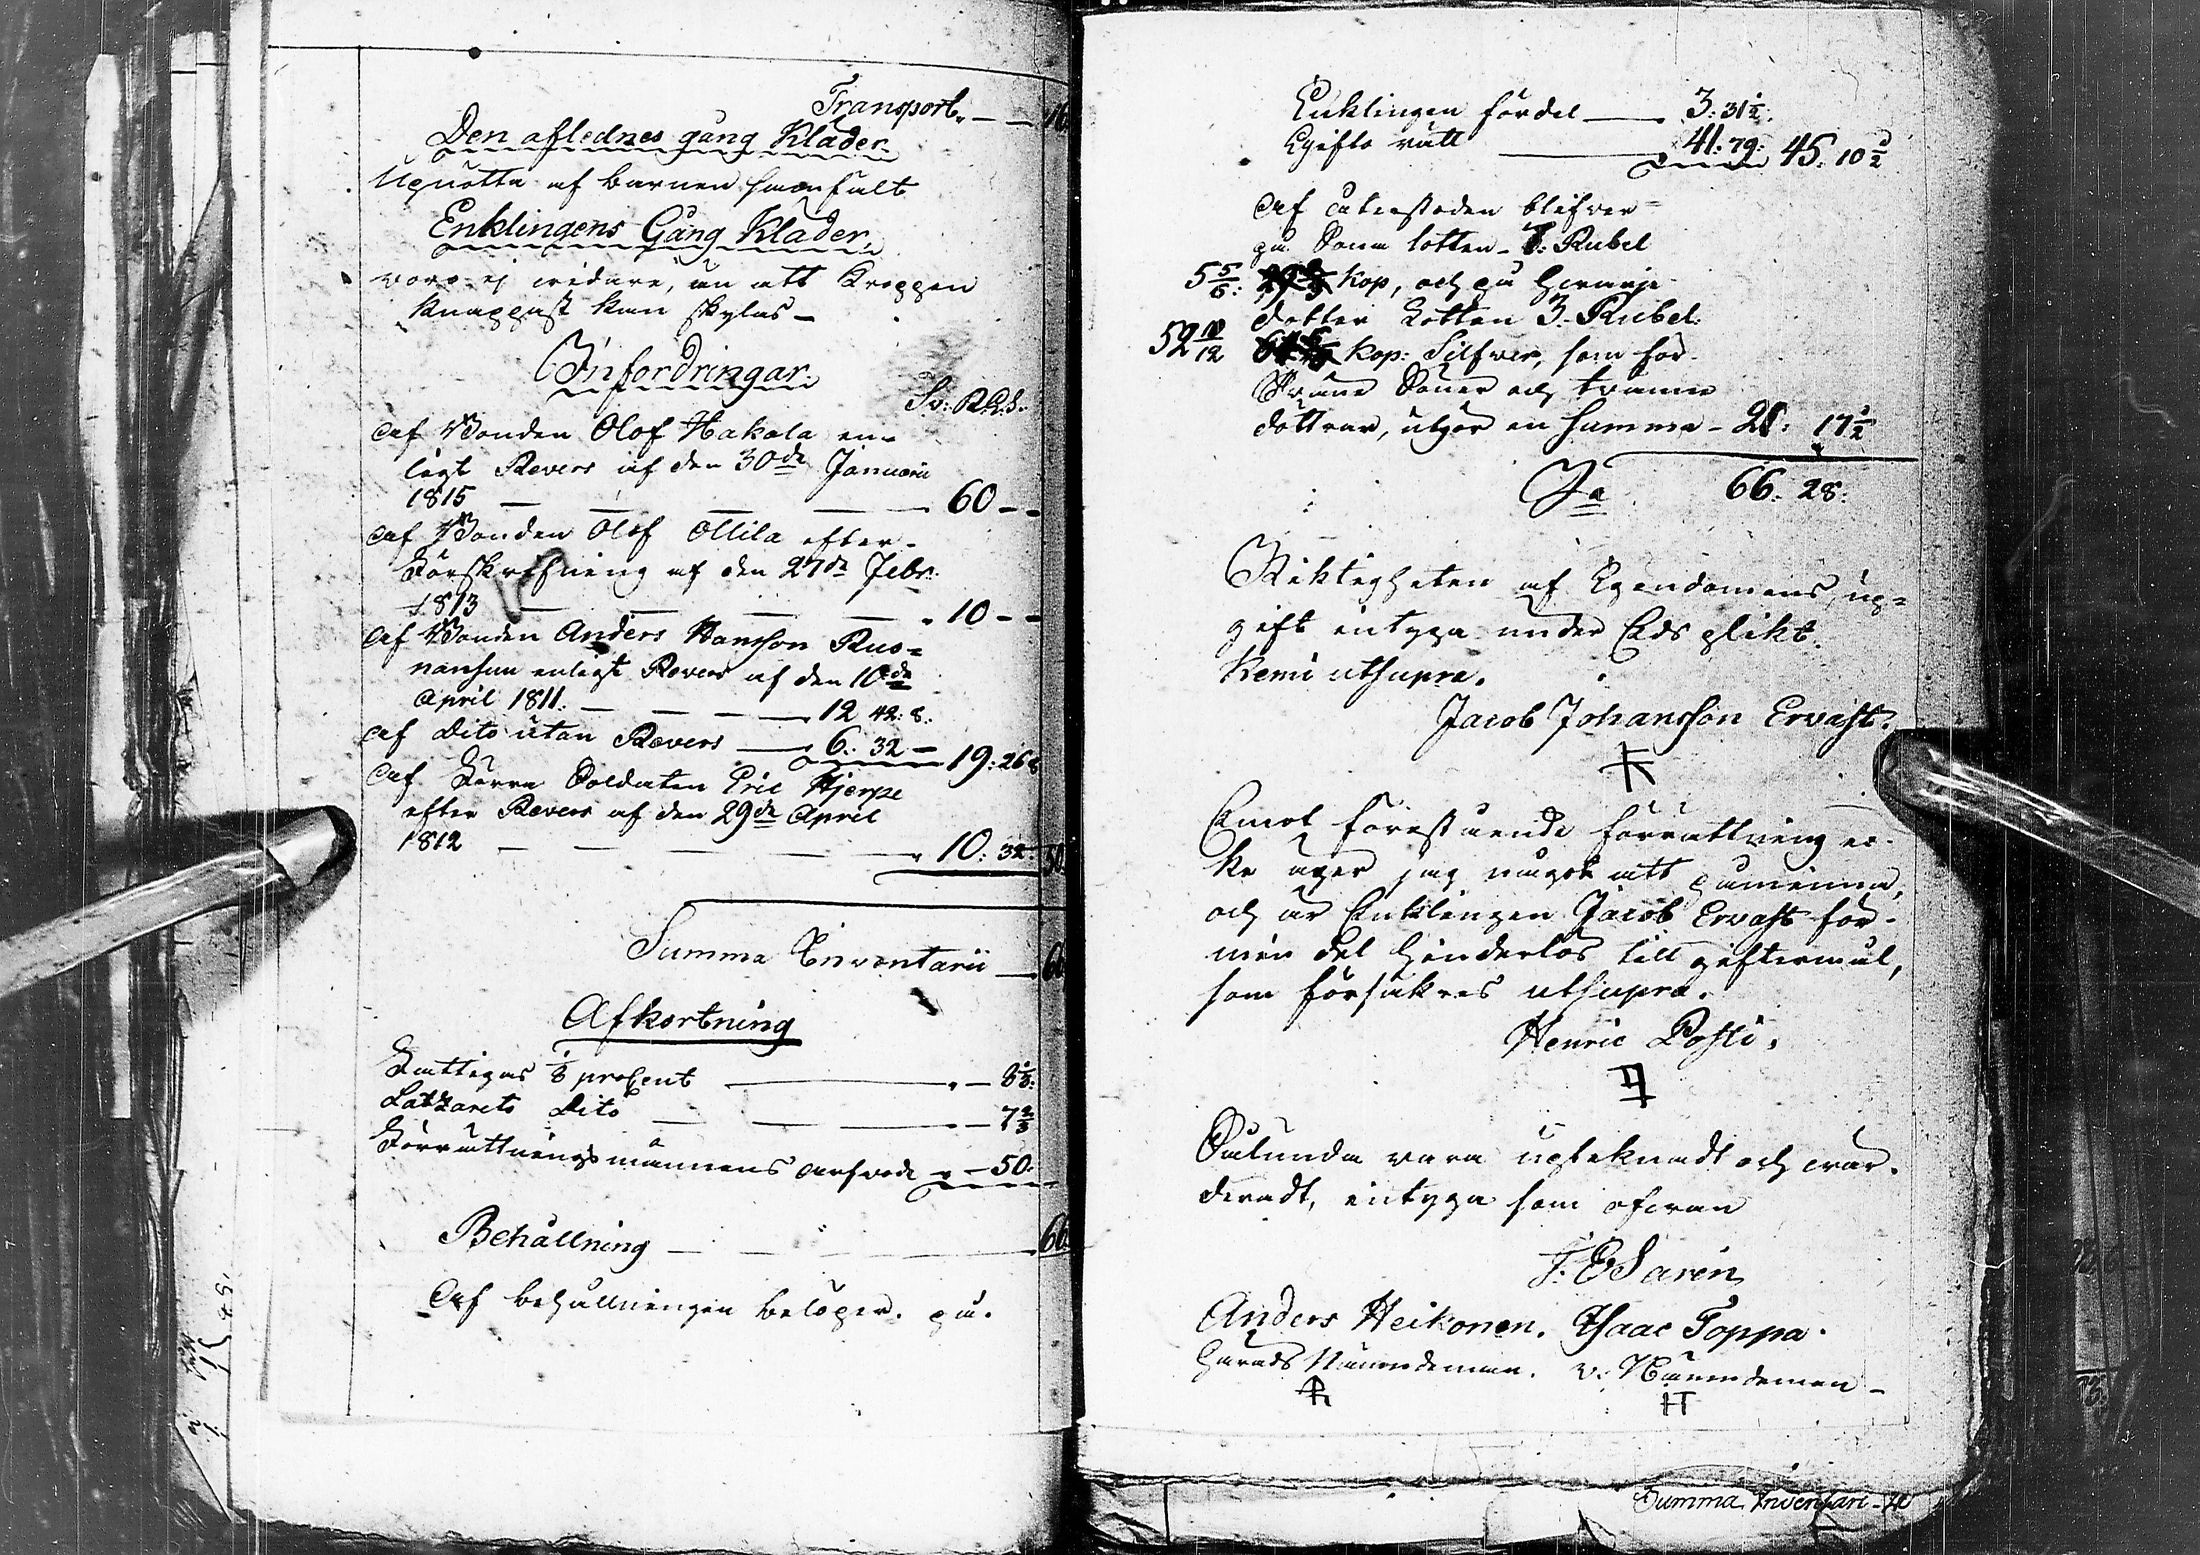 Transport - - 16
Den aflednes gång Kläder.
Upnötta af barnen samfält
Enklingens Gång Kläder.
voro ej vidare, än att Kroppen
knappast kan skylas -
Infordringar.
Sv: R.G.S.
Af Bonden Olof Hakola en-
ligt Revers af den 30de Januarii
1815 - - - - 60 - -
Af Bonden Olof Ollila efter
Förskrifning af den 27de Febr:
1813 - - - - 10 - -
Af Bonden Anders Hansson Rus=
nansuu enligt Revers af den 10de
April 1811. - - - - 12 42: 8.
Af Dito utan Revers - 6. 32 - 19: 26 8
Af Förra Soldaten Eric Hjerpe
efter Revers af den 29de April
1812 - - - - 10: 32. 50
Summa Inventarii - 6
Afkortning
Fattigas 1/8 proCent - - 8 1/3:
Latzarets Dito - - - 7 2/3
Förrättningsmännens arfvode - - 50:
Behållning - - - 66
Af behållningen belöper på.
Enklingen fördel - 3: 31 1/2:
Gifto rätt - 41: 79: 45: 10 1/2
Af återstoden blifver
på Sone lotten - 7: Rubel
5 5/6: kop, och på hvarje
dotter Lotten 3. Rubel:
52 11/12 kop: Silfver, som för
Tvänne Söner och tvänne
döttrar, utgör en Summa - 21: 17 1/2
Sa 66. 28:
Riktigheten af Egendomens up=
gift intyga under Edsplikt.
Kemi utsupra.
Jacob Johansson Ervast.
Emot förestående förrättning ic-
ke äger jag något att påminna,
och är Enklingen Jacob Ervast för
min del hinderlös till giftermål,
som försäkras utsupra.
Henric Posti.
Sålunda vara uptecknadt och vär-
deradt, intyga som ofvan
J: E Sarén
Anders Heikonen. Isaac Toppa.
härads Nämndeman. v. Nämndeman -
Summa Inventari -